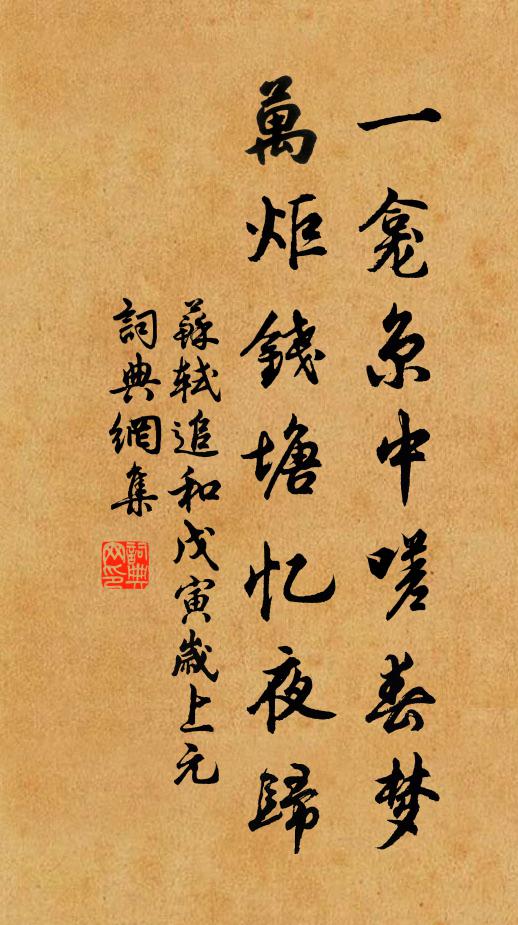 一龛京中嗟春梦
萬炬錢塘忆夜歸
蘇軾追和戊寅歲上元
詞典網集
詞典网印